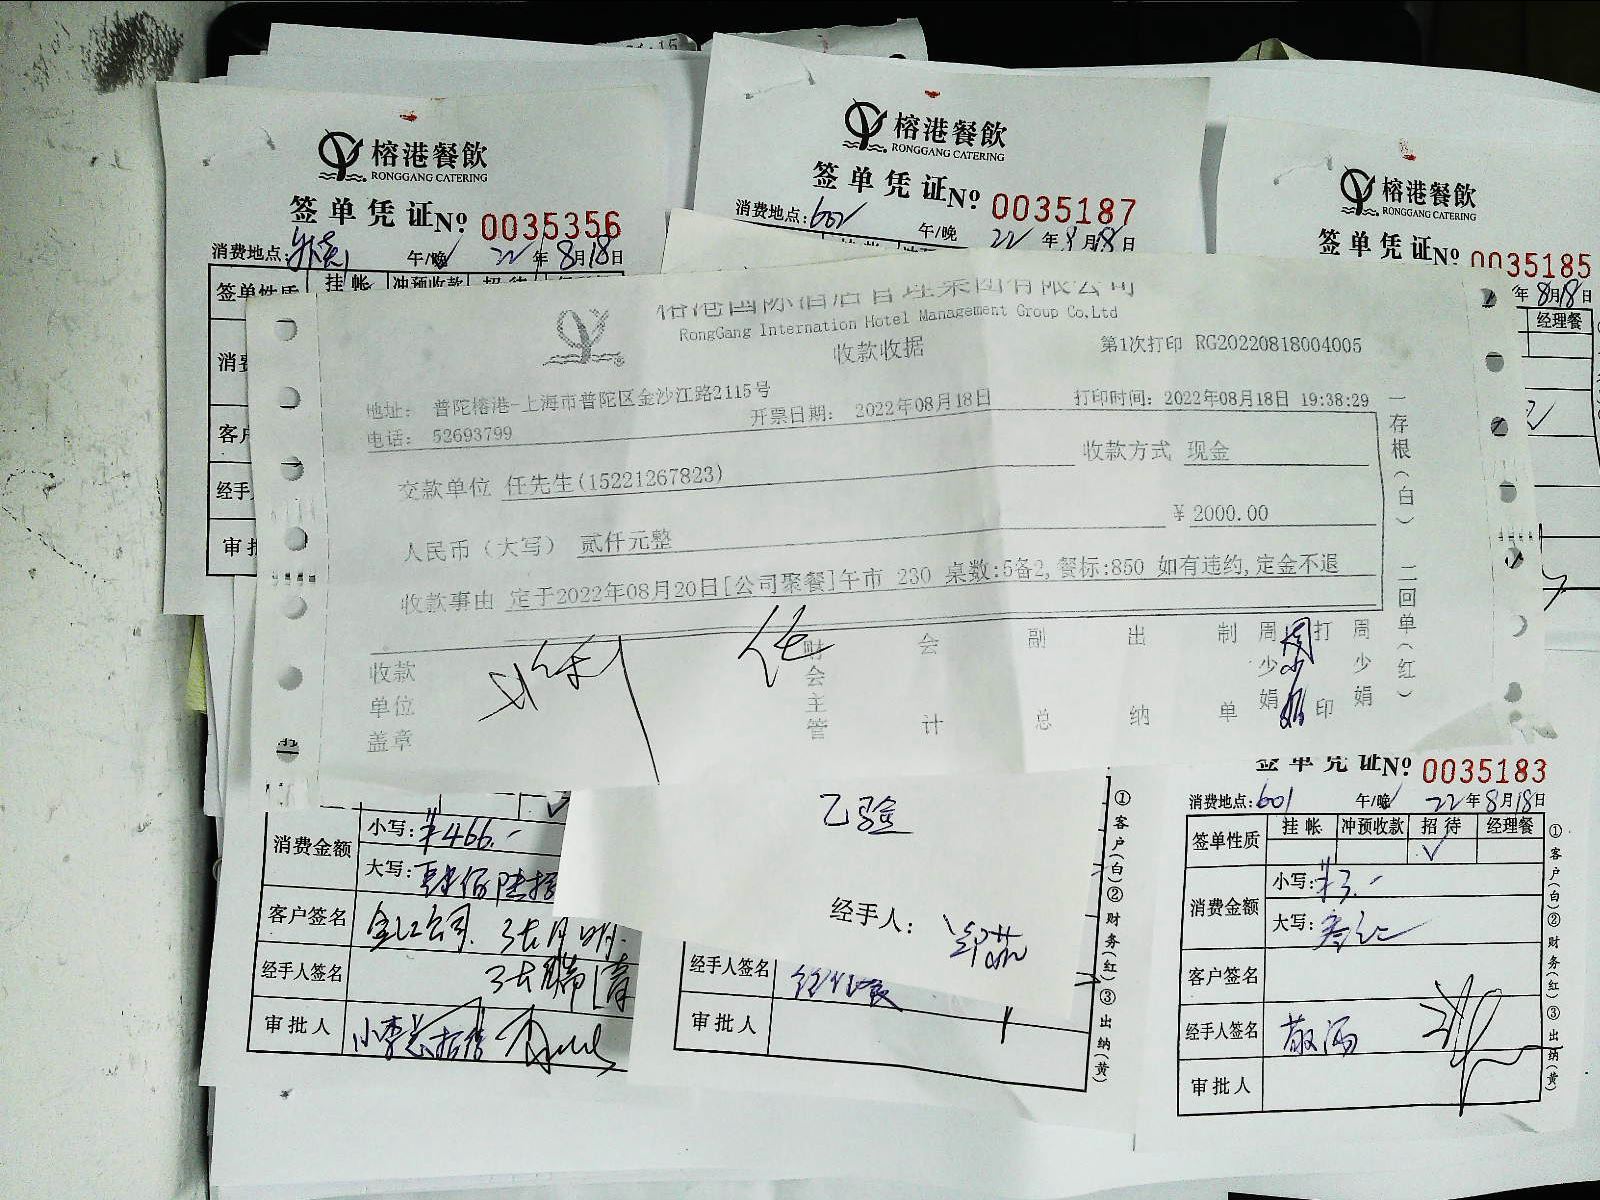 榕港餐飲
RONGGANG CATERING
签单凭证№ 0035356
消费地点: 午/晚 22年8月18日
签单性质 挂帐 冲预收款 招待
消费
客户
经手
审批
榕港餐飲
RONGGANG CATERING
签单凭证№ 0035187
消费地点:602 午/晚 22年8月18日
榕港餐飲
RONGGANG CATERING
签单凭证№ 0035185
年8月18日
经理餐
榕港国际酒店管理集团有限公司
RongGang Internation Hotel Management Group Co.Ltd
收款收据
第1次打印 RG20220818004005
地址: 普陀榕港-上海市普陀区金沙江路2115号
电话: 52693799
开票日期: 2022年08月18日
打印时间: 2022年08月18日 19:38:29
交款单位 任先生(15221267823)
收款方式 现金
人民币（大写） 贰仟元整
¥ 2000.00
收款事由 定于2022年08月20日[公司聚餐]午市 230 桌数:5备2,餐标:850 如有违约,定金不退
收款单位盖章
任
财会主管
会计
副总
出纳
制单
周少娟
周少娟
打印
周少娟
一存根（白） 二回单（红）
消费金额
小写:¥466.-
大写:
客户签名
经手人签名
审批人
乙验
经手人:
经手人签名
审批人
①客户(白)②财务(红)③出纳(黄)
签单凭证№ 0035183
消费地点:601 午/晚 22年8月18日
签单性质 挂帐 冲预收款 招待 经理餐
消费金额
小写:¥3.-
大写:
客户签名
经手人签名
审批人
①客户(白)②财务(红)③出纳(黄)